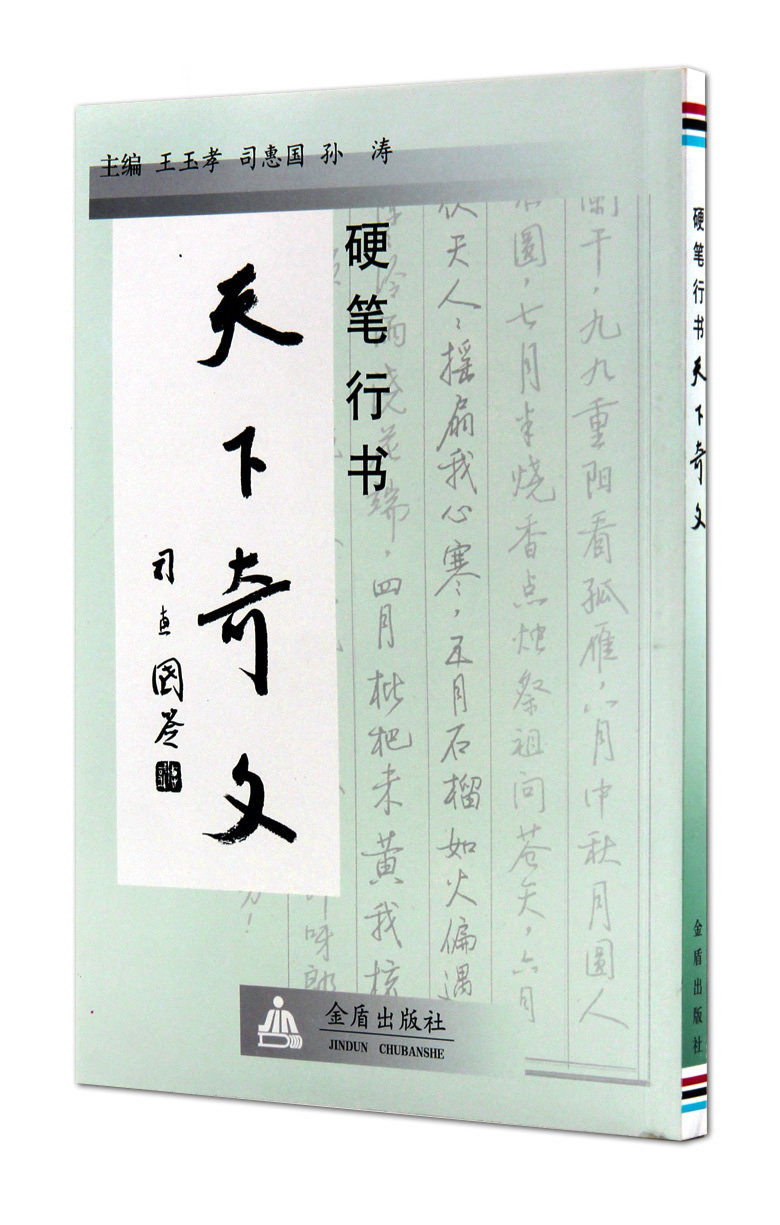 主编 王玉孝 司惠国 孙涛
硬笔行书
天下奇文
司惠國
干，九九重阳看孤雁，八月中秋月圆人
圆，七月半烧香点烛祭祖问苍天，六月
伏天人人摇扇我心寒，五月石榴如火偏遇
冷雨浇花端，四月枇杷未黄我
呀郎
！
金盾出版社
JINDUN CHUBANSHE
硬笔行书 天下奇文
金盾出版社